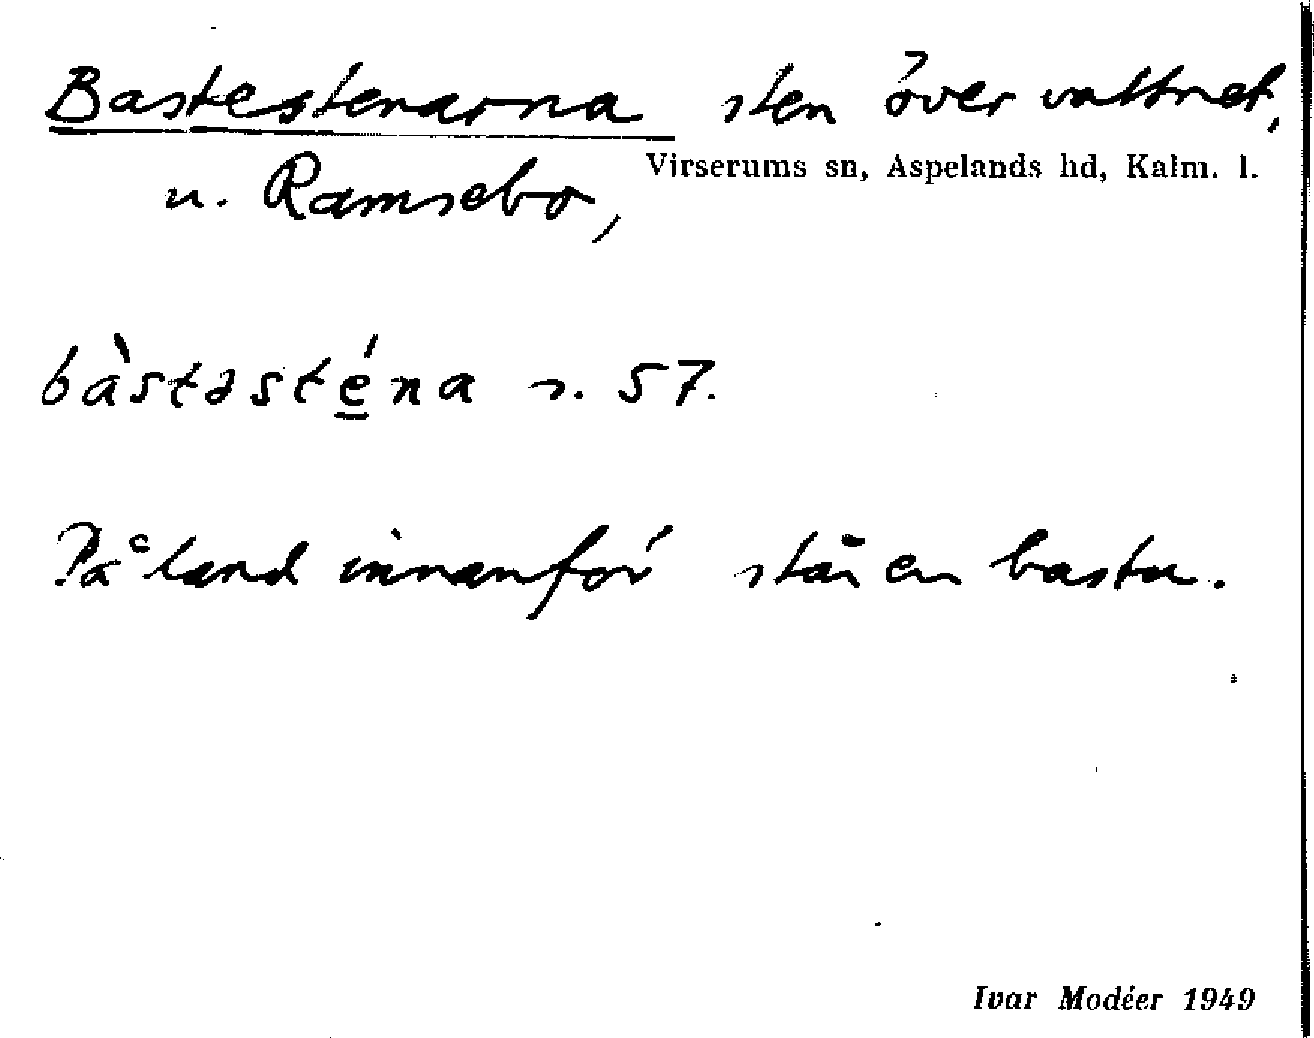 Bastestenarna sten över vattnet,
u. Ramsebo, Virserums sn, Aspelands hd, Kalm. l.
bàstəsténa s. 57.
På land innanför står en bastu.
Ivar Modéer 1949